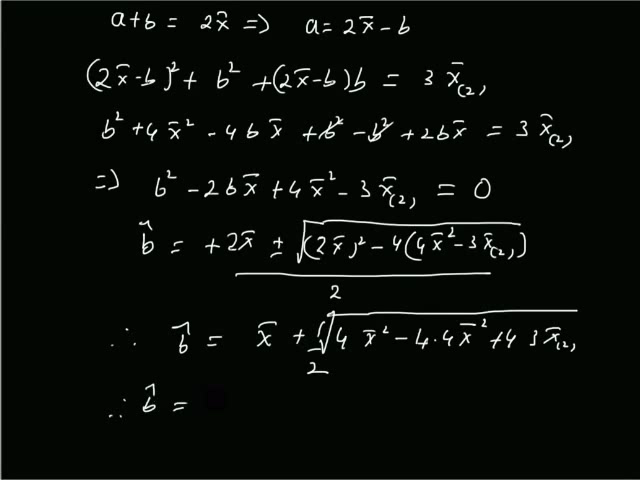 a+b = 2x̄ => a = 2x̄ - b
(2x̄-b)² + b² + (2x̄-b)b = 3x̄₍₂₎
b² + 4x̄² - 4bx̄ + b² - b² + 2bx̄ = 3x̄₍₂₎
=> b² - 2bx̄ + 4x̄² - 3x̄₍₂₎ = 0
b̂ = +2x̄ ± √((2x̄)² - 4(4x̄² - 3x̄₍₂₎))
2
∴ b̂ = x̄ + 1/2 √(4x̄² - 4·4x̄² + 4 3x̄₍₂₎)
∴ b̂ =